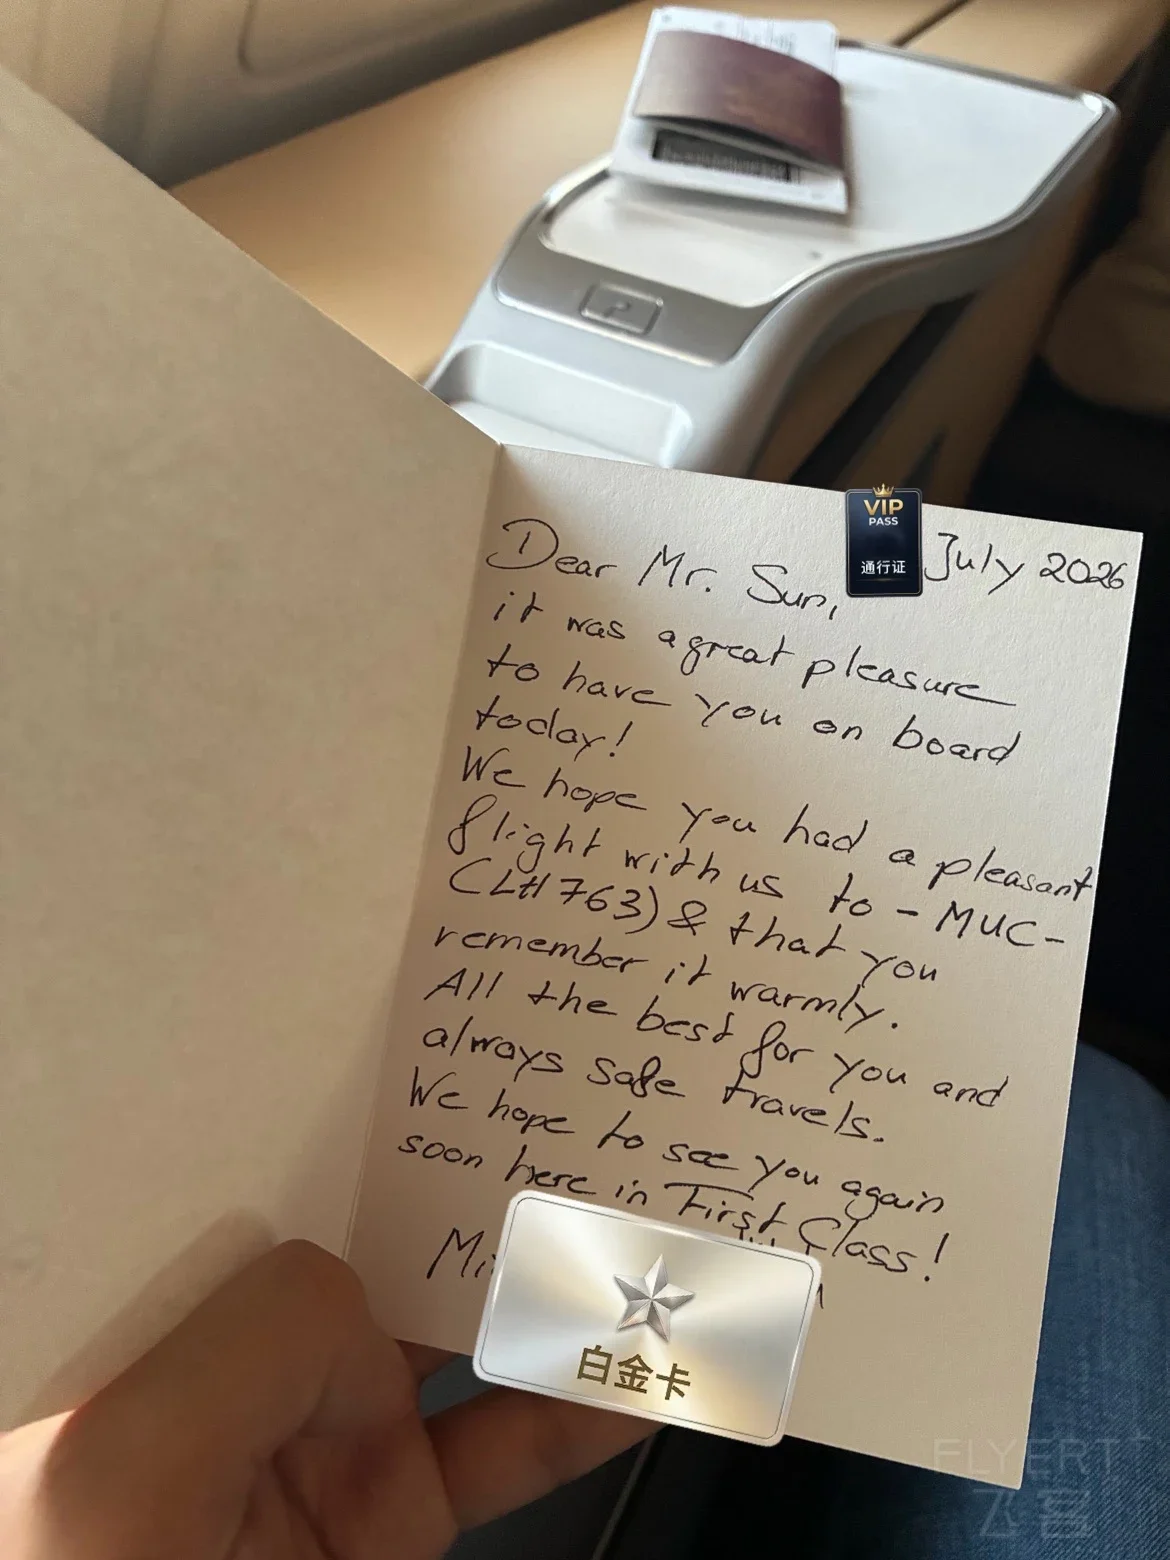 VIP
PASS
通行证
July 2026
Dear Mr. Sun,
it was a great pleasure
to have you on board
today!
We hope you had a pleasant
flight with us to - MUC -
(LH 763) & that you
remember it warmly.
All the best for you and
always safe travels.
We hope to see you again
soon here in First Class!
白金卡
FLYERT
飞客